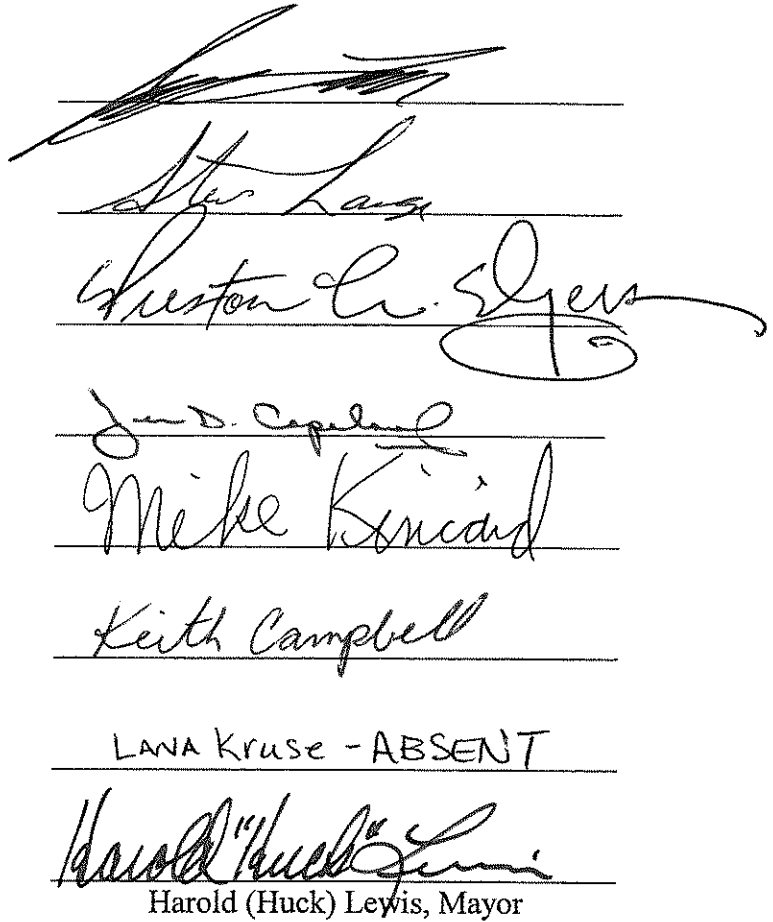 Steve Lange
Preston W. Edgers
D. Copeland
Mike Kincaid
Keith Campbell
LANA Kruse - ABSENT
Harold "Huck" Lewis
Harold (Huck) Lewis, Mayor